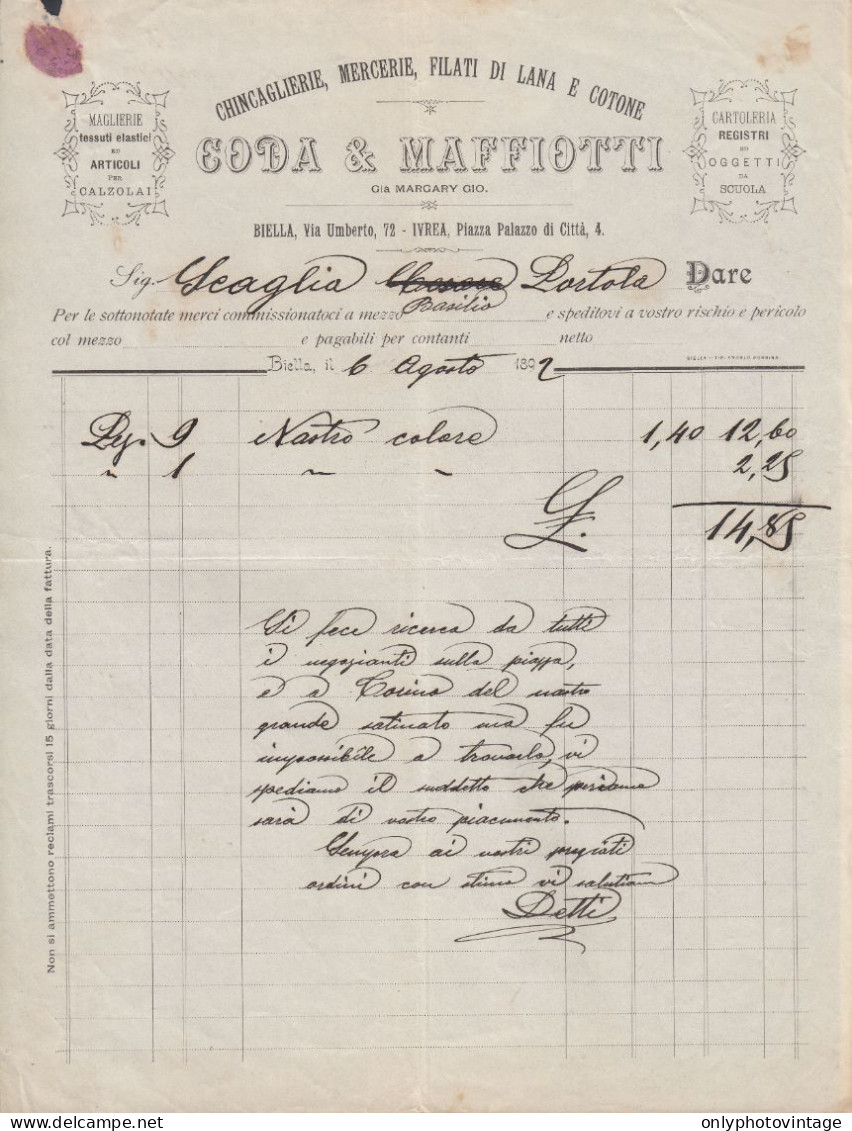 CHINCAGLIERIE, MERCERIE, FILATI DI LANA E COTONE
MAGLIERIE
tessuti elastici
ED
ARTICOLI
PER
CALZOLAI
CODA & MAFFIOTTI
Già MARGARY GIO.
CARTOLERIA
REGISTRI
ED
OGGETTI
DA
SCUOLA
BIELLA, Via Umberto, 72 - IVREA, Piazza Palazzo di Città, 4.
Sig. Scaglia Cesare Portola Dare
Basilio
Per le sottonotate merci commissionatoci a mezzo e speditovi a vostro rischio e pericolo
col mezzo e pagabili per contanti netto
Biella, il 6 Agosto 1892
BIELLA - TIP.
Py. 9 Nastro colore 1,40 12,60
" 1 " " 2,25
L. 14,85
Si fece ricerca da tutti
i negozianti sulla piazza,
e a Torino del nastro
grande satinato ma fu
impossibile a trovarlo, vi
spediamo il suddetto che
sarà di vostro piacimento.
Sempre ai vostri pregiati
ordini con stima vi salutiam
Detti
Non si ammettono reclami trascorsi 15 giorni dalla data della fattura.
onlyphotovintage